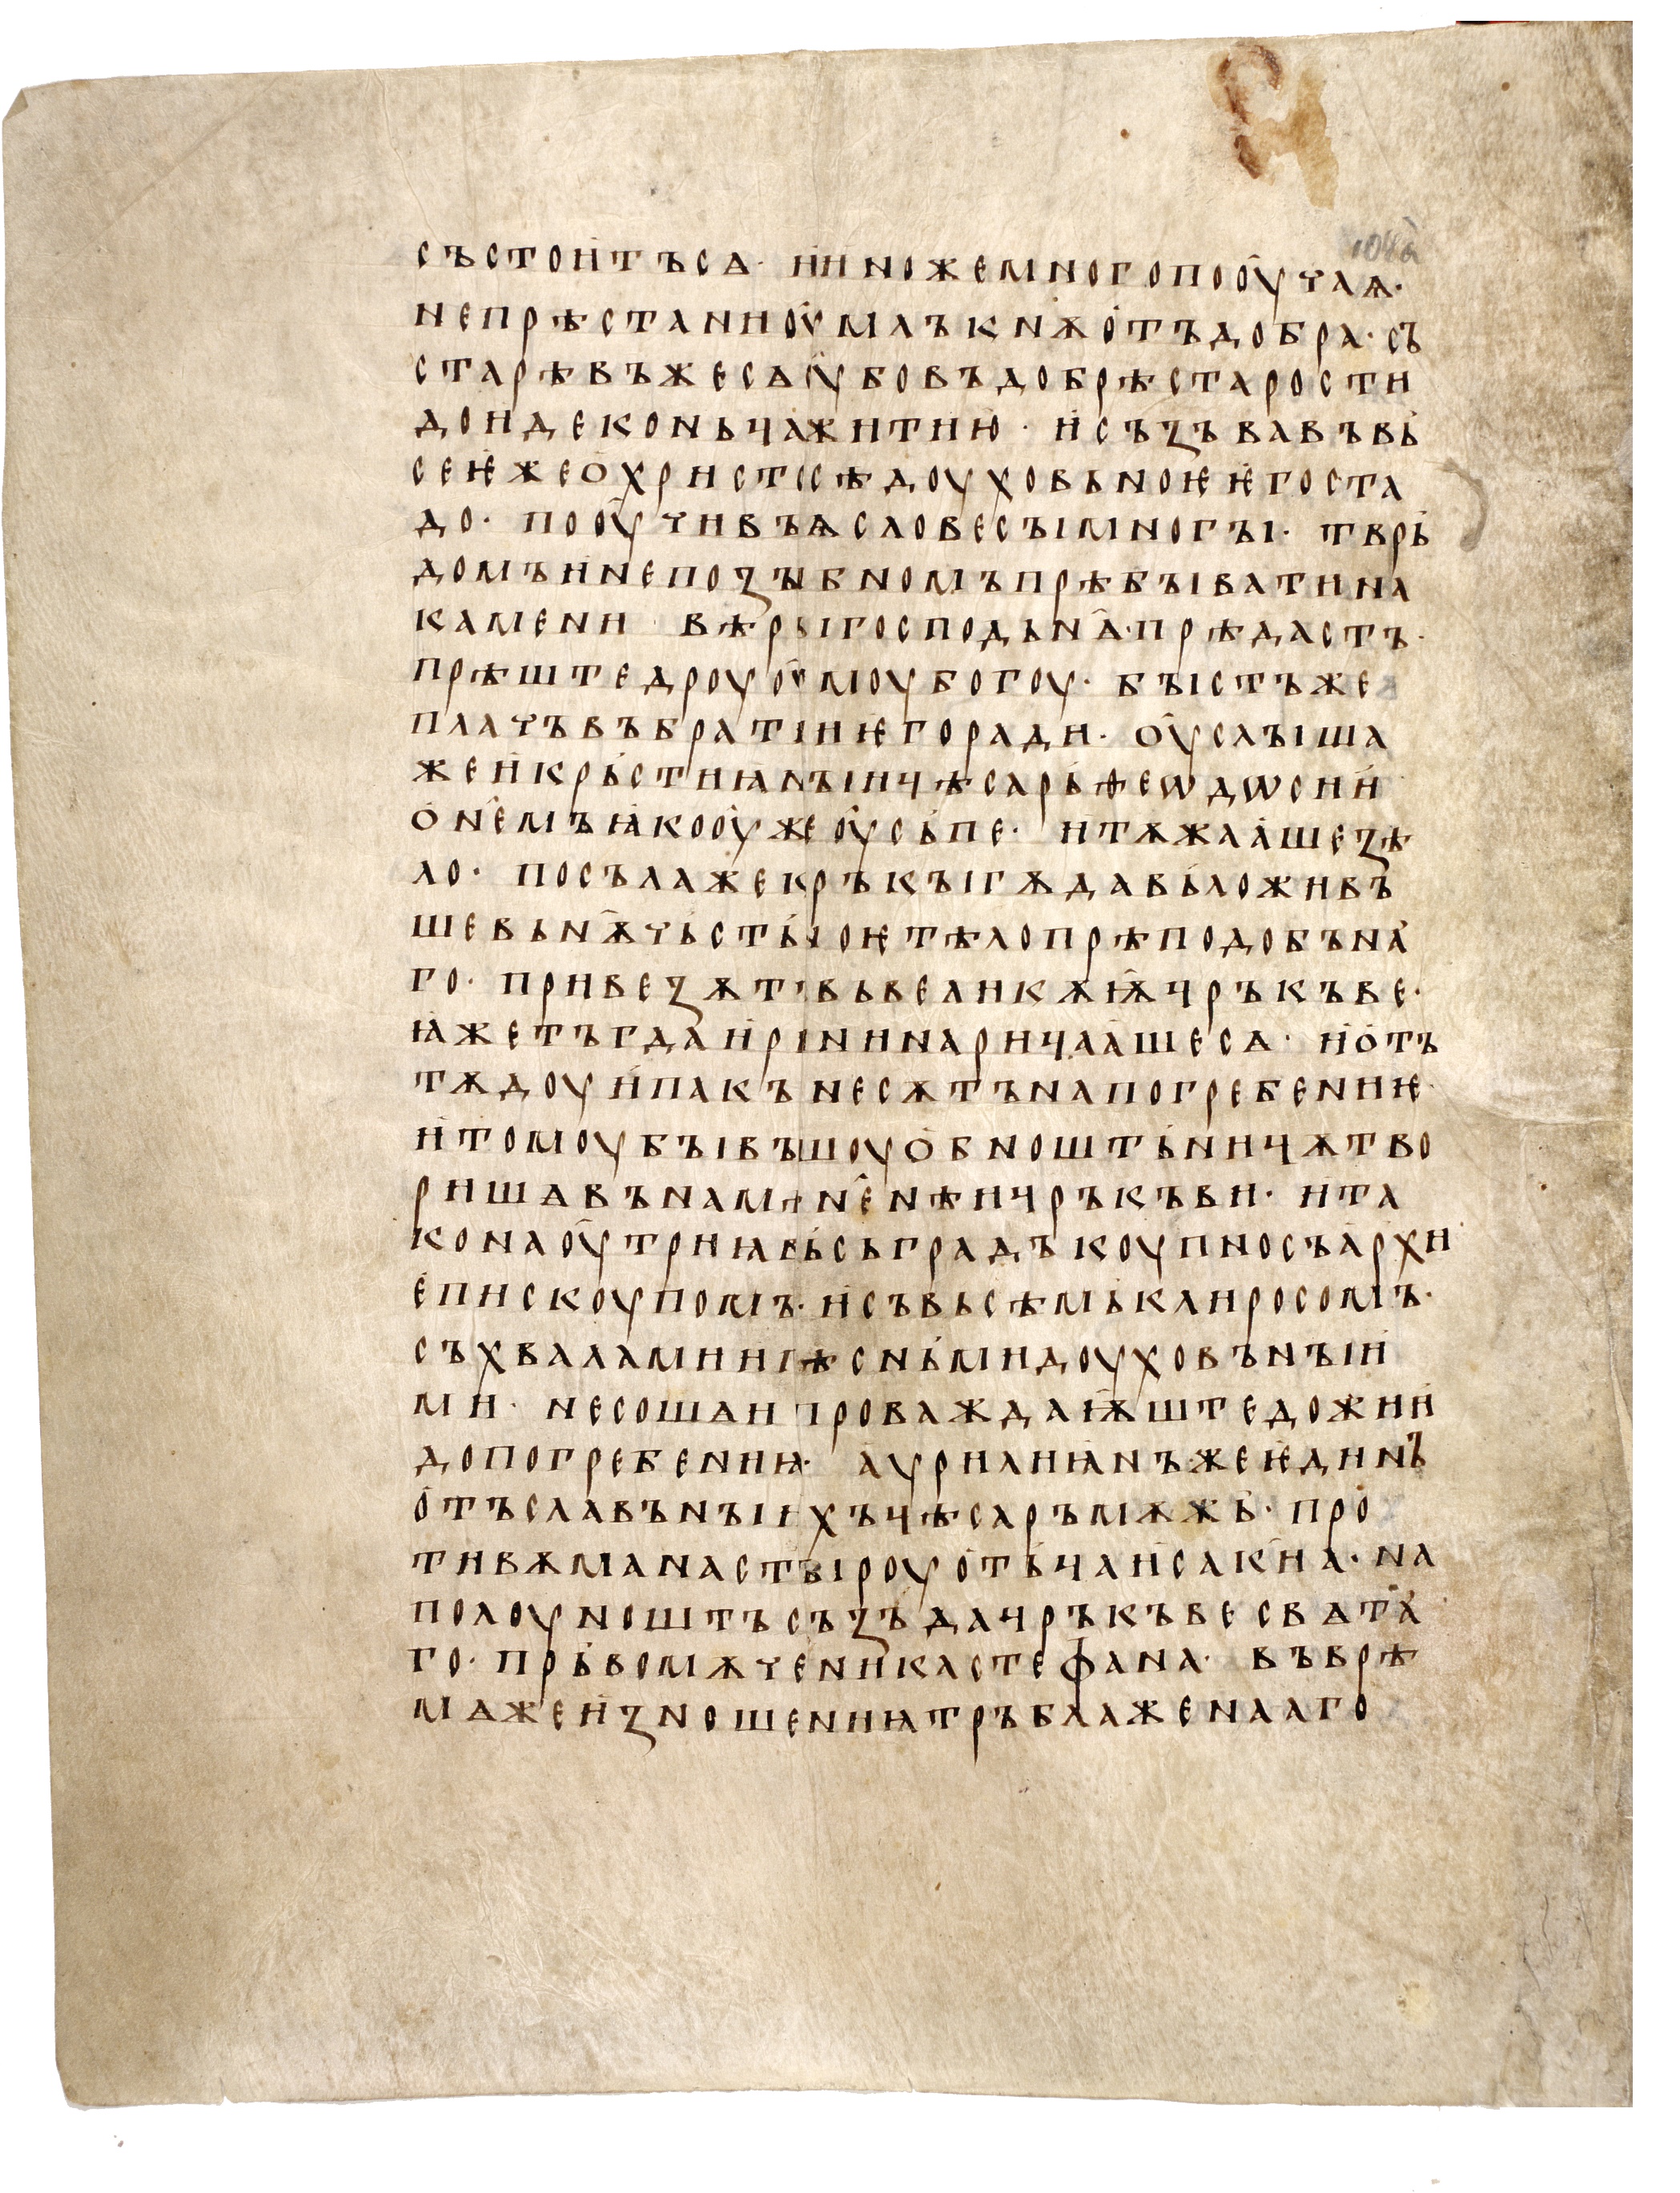 състоитъсѧ· инножемногопооучаѩ·
непрѣстанноумлъкнѫотъдобра· съ
старѣвъжесѧоубовъдобрѣстарости
дондеконьчажитию· исъꙁъвавъвь
сеѥжеохристосѣдоуховьноѥѥгоста
до· пооучивъѩсловесъімногъі· тврь
домъинепоꙁъібномъпрѣбъіватина
камени вѣръігосподьнꙗ·прѣдастъ·
прѣштедроуоумоубогоу· бъістъже
плачъвъбратииѥгоради· оуслъіша
жеикрьстиꙗнъіицѣсарьѳеѡдѡсии
онемъꙗкооужеоусьпе· итѫжаашеꙁѣ
ло· посълажекръкъігѫдавьложивъ
шевьнѭчьстьноѥтѣлопрѣподобъна
го· привеꙁѫтъвьвеликѫѭцръкъве·
ꙗжетъгдаиринниарицаашесѧ· иотъ
тѫдоуипакънесѫтънапогребениѥ·
итомоубъівъшоуобноштьницѫтво
ришѧвънамѣненѣицръкъви· ита
конаоутриꙗвьсьградъкоупносъархи
епискоупомъ·исъвьсѣмькливросомъ·
съхваламиипѣсньмидоуховънъіи
ми· несошѧипроваждаѭштедожии
допогребениꙗ· ауρилиꙗнъжеѥдинъ
отъславънъіихъцѣсаръмѫжь· про
тивѫманастъіроуотьцаисакиа· на
полоуноштъсъꙁъдацръкъвесвѧта
го· прьвомѫченикастефана· въврѣ
мѧжеиꙁношениꙗтръблаженааго